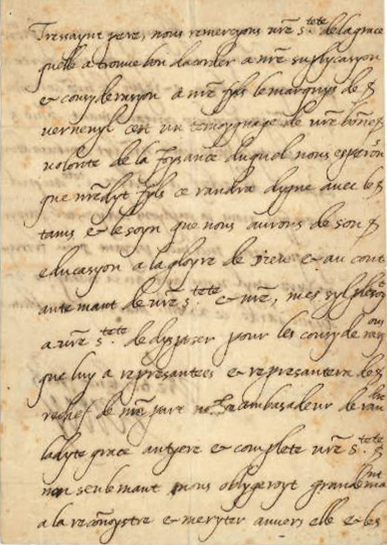 Tressaynt pere, nous remercyons vre s.teté de la grace
qu'elle a trouvé bon dacorder a nre suplycasyon
& consyderasyon a nre fyls le marquys de
vernenyl c'est un temoygnage de vre bonne
volonté de la foysance duquel nous esperons
que nredyt fyls ce randra dygne avec le
tans & le soyn que nous aurons de son
educasyon a la gloyre de Dieu & au cont
antemant de vre s.teté & nre, mes
a vre s.teté de pour les consyderasyons
que luy a representees & representera de
rechef de nre part nre ambasadeur de randre
ladyte grace antyere & complete vre s.teté
non seulemant nous oblygeroyt grandemant
a la reconoystre & meryter anvers elle & les